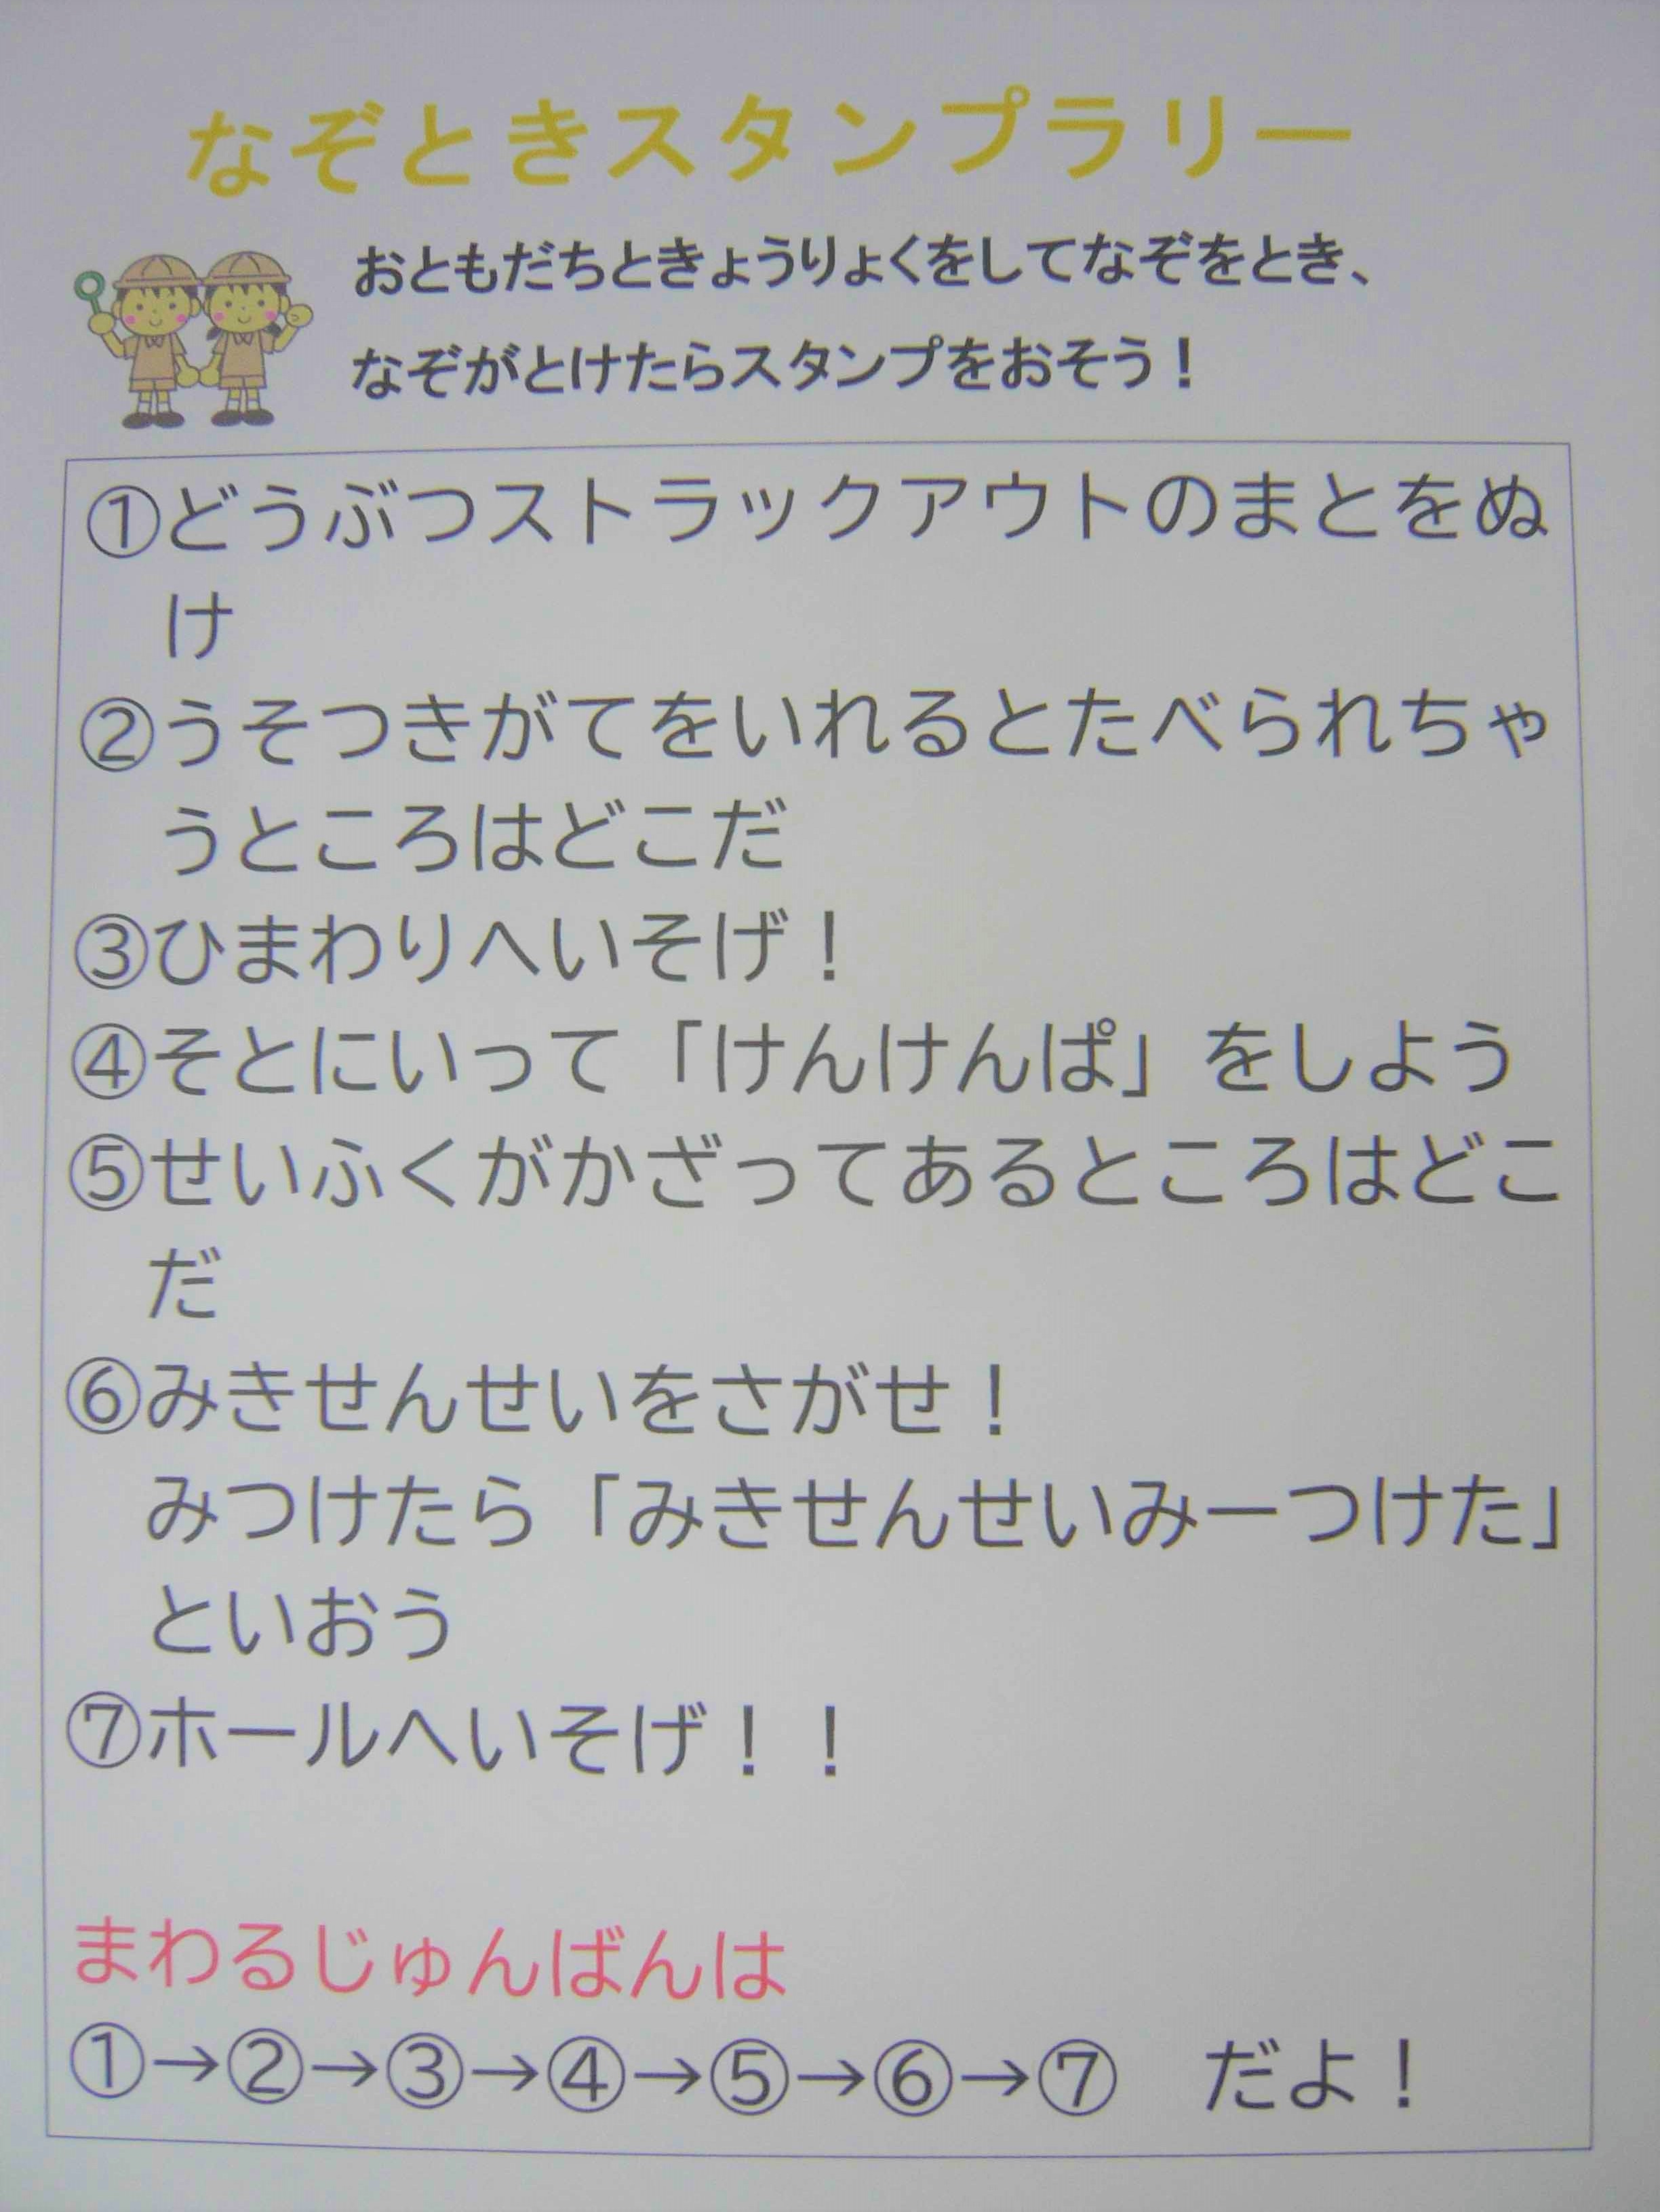 なぞときスタンプラリー
おともだちときょうりょくをしてなぞをとき、
なぞがとけたらスタンプをおそう！
①どうぶつストラックアウトのまとをぬ
け
②うそつきがてをいれるとたべられちゃ
うところはどこだ
③ひまわりへいそげ！
④そとにいって「けんけんぱ」をしよう
⑤せいふくがかざってあるところはどこ
だ
⑥みきせんせいをさがせ！
みつけたら「みきせんせいみーつけた」
といおう
⑦ホールへいそげ！！
まわるじゅんばんは
①→②→③→④→⑤→⑥→⑦　だよ！